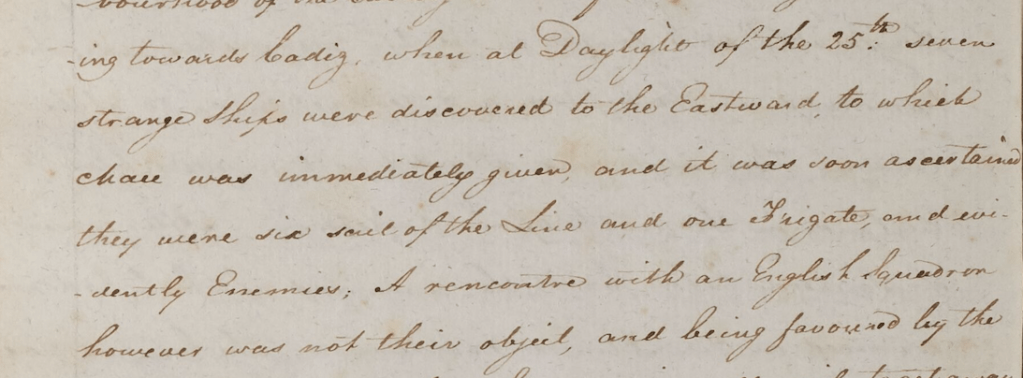 -ing towards Cadiz, when at Daylight of the 25.th seven
strange Ships were discovered to the Eastward, to which
chace was immediately given, and it was soon ascertained
they were six sail of the Line and one Frigate, and evi-
-dently Enemies; A rencontre with an English Squadron
however was not their object, and being favoured by the